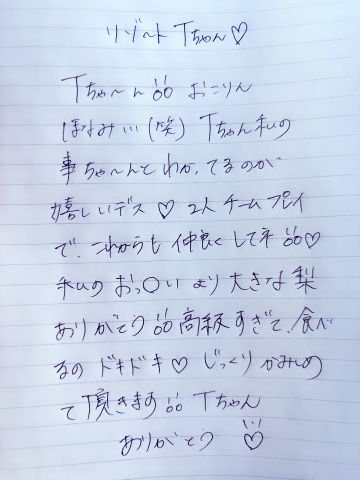 リゾート Tちゃん♡
Tちゃ〜ん!! おこりん
ぼすみ…(笑) Tちゃん私の
事ちゃ〜んとわかってるのが
嬉しいデス♡ 2人チームプレイ
で、これからも仲良くして
私のおっ〇いより大きな梨
ありがとう!! 高級すぎて、食べ
るのドキドキ♡ じっくりかみしめ
て頂きます!! Tちゃん
ありがとう ♡